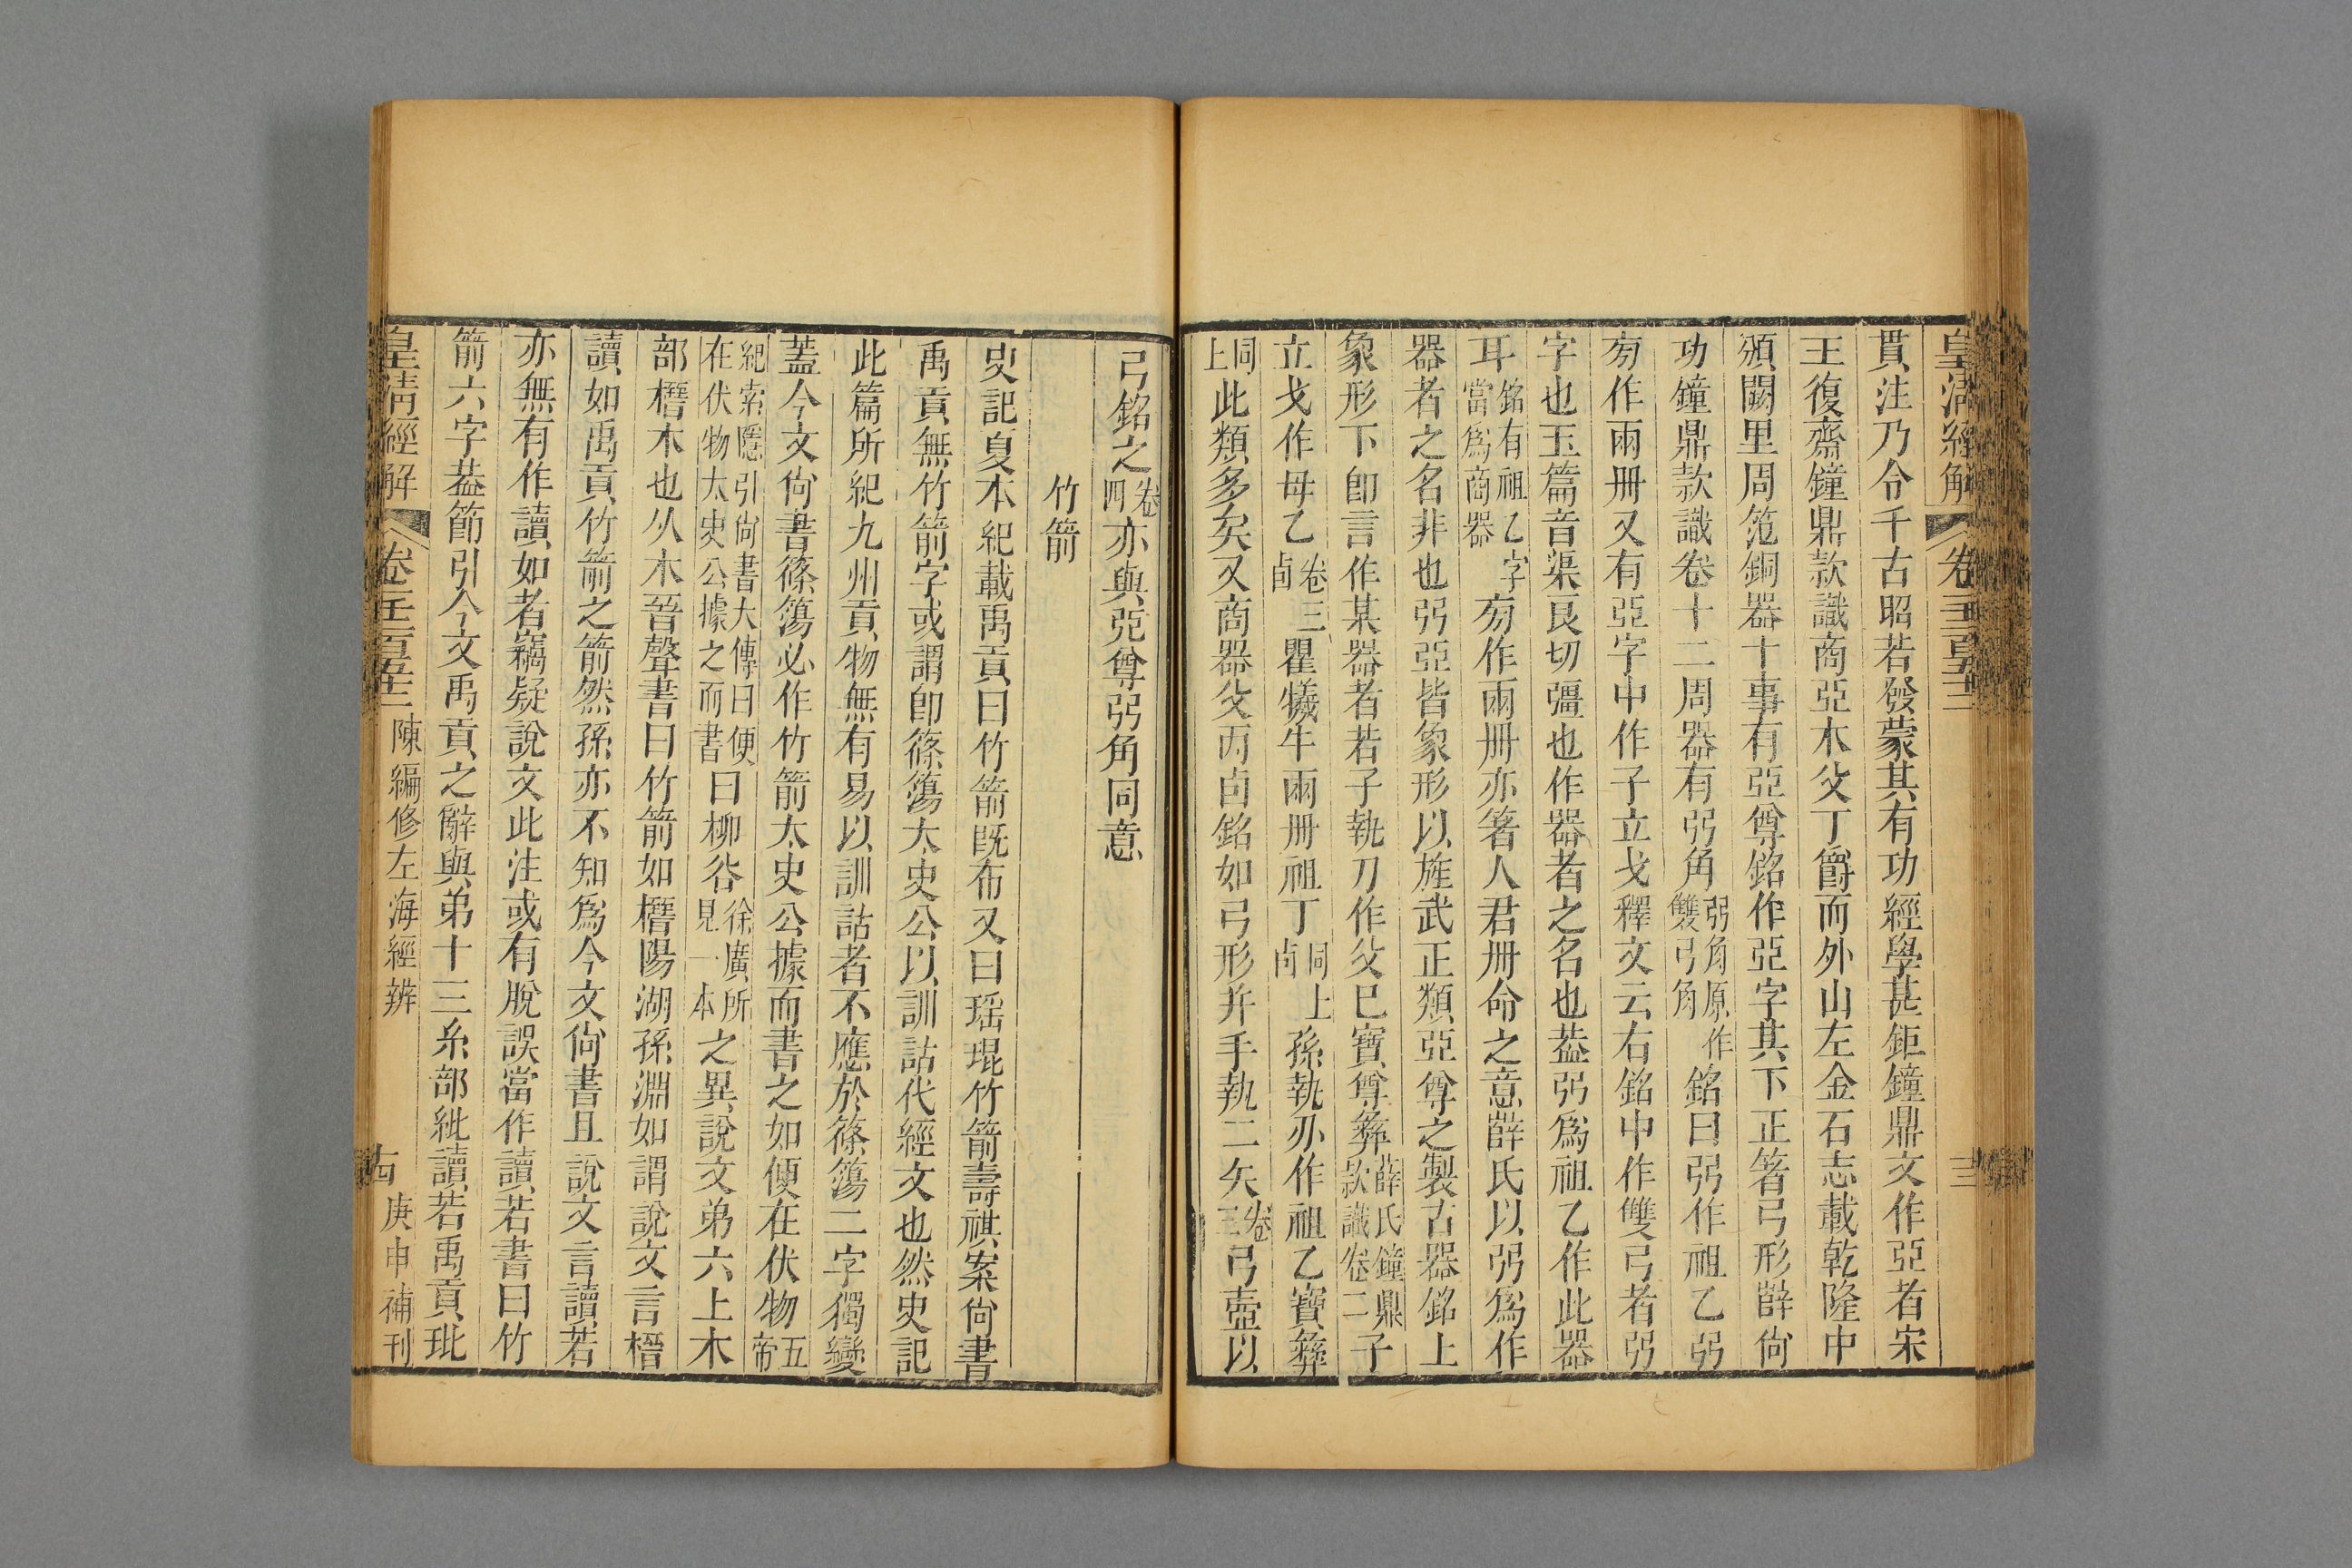 皇清經解 卷
貫注乃令千古昭若發蒙其有功經學甚鉅鐘鼎文作亞者宋
王復齋鐘鼎款識商亞木父丁爵而外山左金石志載乾隆中
頒闕里周笵銅器十事有亞尊銘作亞字其下正箸弓形辥尙
功鐘鼎款識卷十二周器有弜角弜角原作雙弓角銘曰弜作祖乙弜
旁作兩冊又有亞字中作子立戈釋文云右銘中作雙弓者弜
字也玉篇音渠良切彊也作器者之名也葢弜爲祖乙作此器
耳銘有祖乙字當爲商器旁作兩冊亦箸人君冊命之意辥氏以弜爲作
器者之名非也弜亞皆象形以旌武正類亞尊之製古器銘上
象形下卽言作某器者若子執刀作父巳寶尊彝薛氏鐘鼎款識卷二子
立戈作母乙卣卷三瞿犧牛兩冊祖丁卣同上孫執刅作祖乙寶彝
同上此類多矣又商器父丙卣銘如弓形幷手執二矢卷三弓壺以
弓銘之卷四亦與亞尊弜角同意
竹箭
史記夏本紀載禹貢曰竹箭旣布又曰瑶琨竹箭壽祺案尙書
禹貢無竹箭字或謂卽篠簜太史公以訓詁代經文也然史記
此篇所紀九州貢物無有易以訓詁者不應於篠簜二字獨變
葢今文尙書篠簜必作竹箭太史公據而書之如便在伏物五帝
紀索隱引尙書大傳曰便在伏物太史公據之而書曰柳谷徐廣所見一本之異說文弟六上木
部櫭木也从木晉聲書曰竹箭如櫭陽湖孫淵如謂說文言櫭
讀如禹貢竹箭之箭然孫亦不知爲今文尙書且說文言讀若
亦無有作讀如者竊疑說文此注或有脫誤當作讀若書曰竹
箭六字葢節引今文禹貢之辭與弟十三糸部紕讀若禹貢玭
皇清經解 卷 陳編修左海經辨 古 庚申補刊